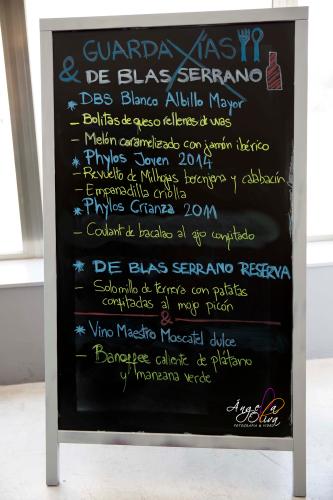 GUARDAVÍAS
& DE BLAS SERRANO
* DBS Blanco Albillo Mayor
- Bolitas de queso rellenas de uvas
- Melón caramelizado con jamón ibérico
* Phylos Joven 2014
- Revuelto de Milhojas berenjena y calabacín
- Empanadilla criolla
* Phylos Crianza 2011
- Coulant de bacalao al ajo confitado
* DE BLAS SERRANO RESERVA
- Solomillo de ternera con patatas
confitadas al mojo picón
&
* Vino Maestro Moscatel dulce
- Banoffee caliente de plátano
y manzana verde
Ángela
Oliva
FOTOGRAFÍA & VIDEO